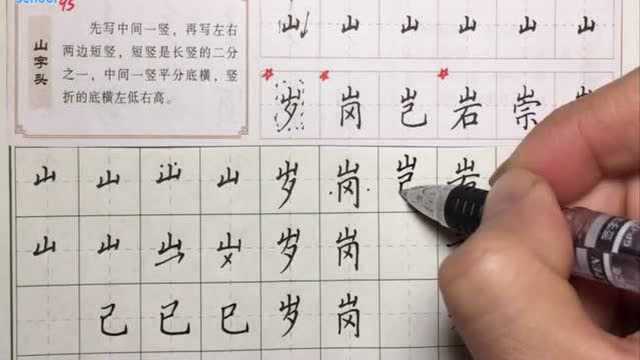 school
95
山字头
先写中间一竖，再写左右
两边短竖，短竖是长竖的二分
之一，中间一竖平分底横，竖
折的底横左低右高。
山 山 山 山 山 山
岁 岗 岂 岩 崇
山 山 山 山 岁 岗 岂 岩
山 山 山 山 岁 岗
己 己 己 岁 岗